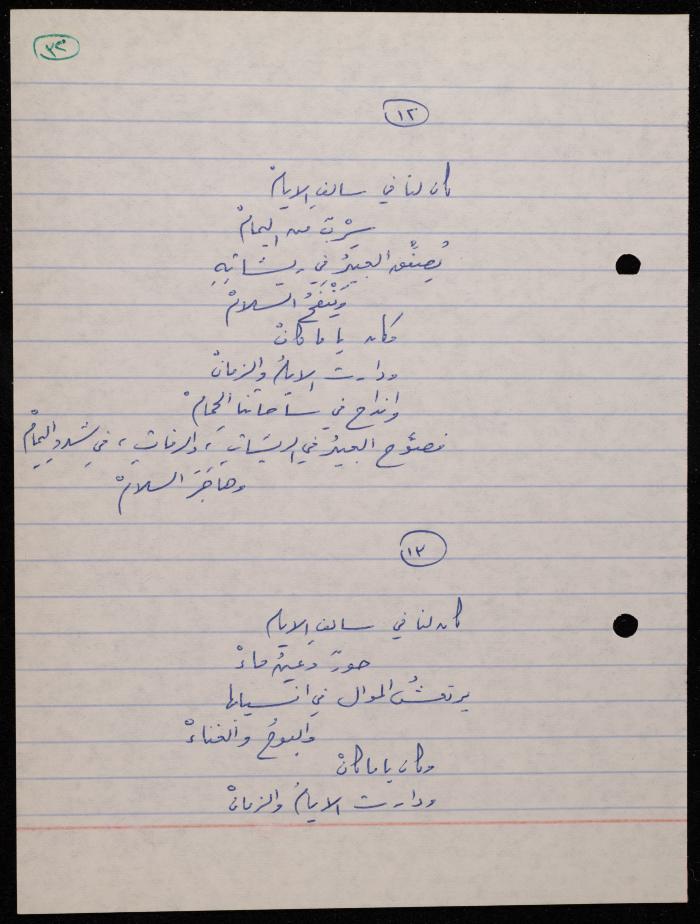 ٣٣
١٢
كان لنا في سالفِ الايامْ
سِرْبٌ من اليمامْ
يُصَفِّقُ العبيرُ في ريشاتِهِ
وَيَنْفَحُ السلامْ
وكان يا ما كانْ
ودارت الايامُ والزمانْ
وانداح في ساحاتنا الحِمامْ
فصَوَّح العبيرُ في الريشاتِ ، والرفاتِ ، في شدوِ اليمامْ
وهاجَرَ السلامْ
١٣
كان لنا في سالفِ الايامْ
حورٌ وعينُ ماءْ
يرتعشُ الموال في انسيابها
والبوحُ والغناءْ
وكان يا ما كانْ
ودارت الايامُ والزمانْ